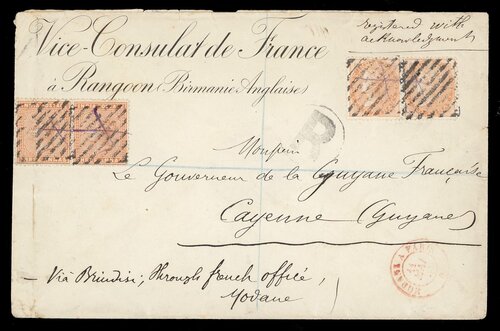 Vice-Consulat de France
à Rangoon (Birmanie Anglaise)
registered with
acknowledgment
R
Monsieur
Le Gouverneur de la Guyane Française
Cayenne (Guyane)
Via Brindisi, through french office,
Modane